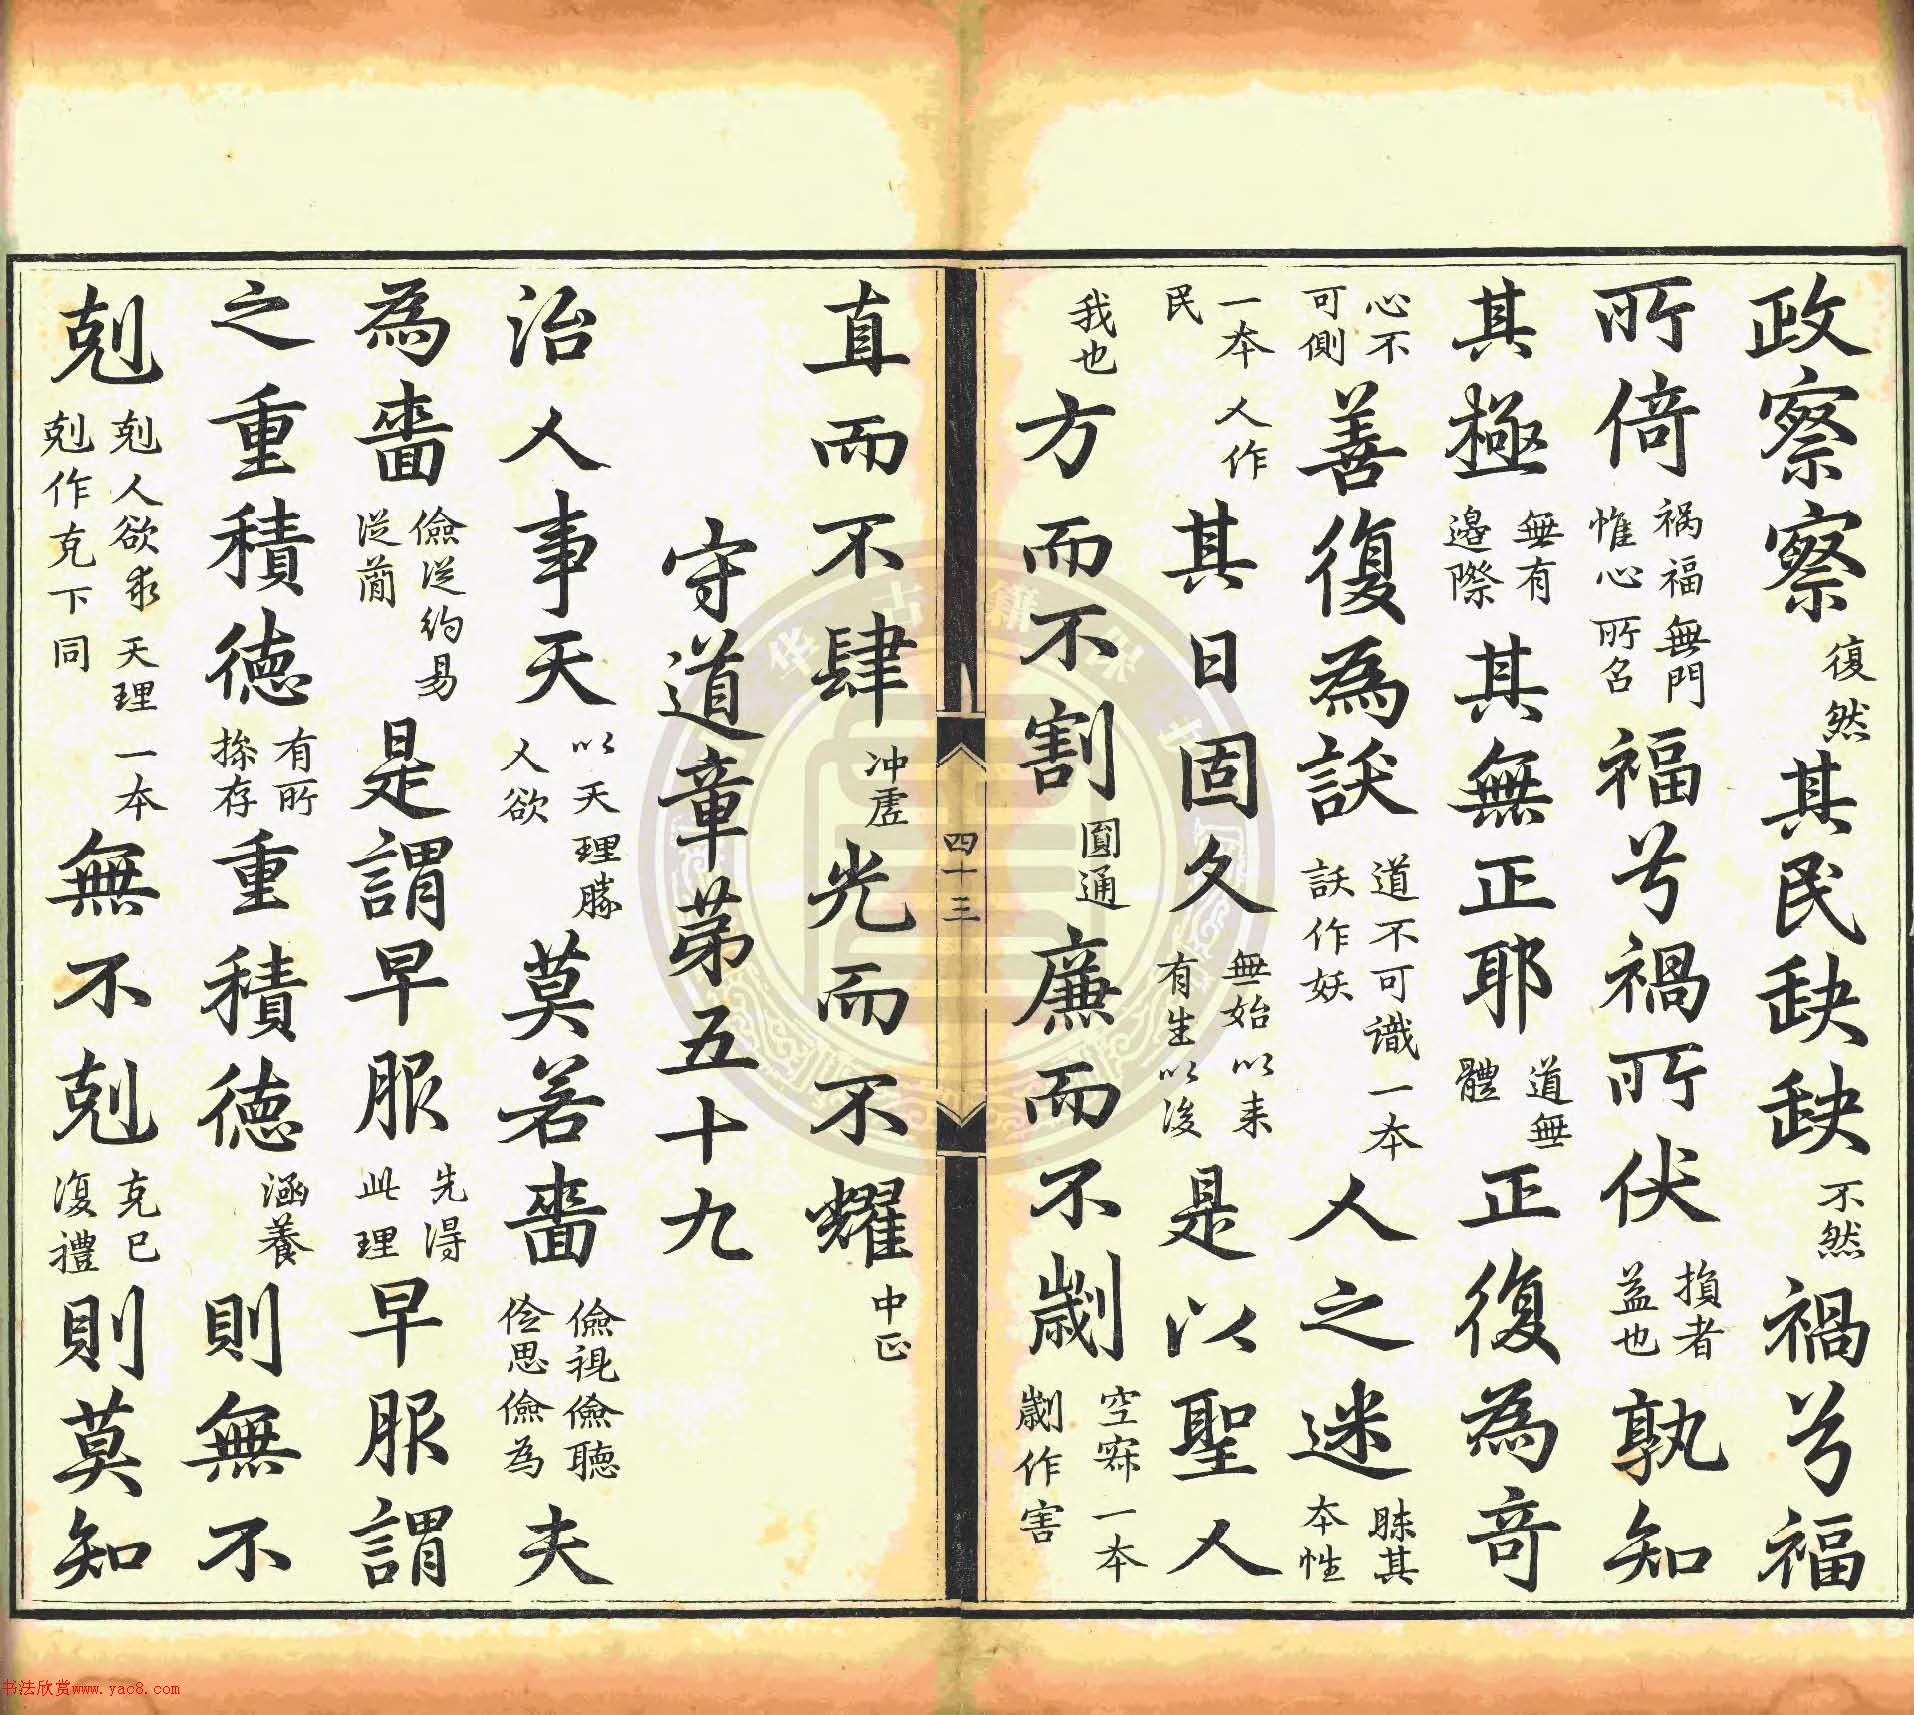 政察察復然其民缺缺不然禍兮福
所倚禍福無門惟心所名福兮禍所伏損者益也孰知
其極無有邊際其無正耶道無體正復為奇
心不可側善復為訞道不可識一本訞作妖人之迷昧其本性
一本人作民其日固久無始以来有生以後是以聖人
我也方而不割圓通廉而不劌空寂一本劌作害
四十三
直而不肆冲虛光而不耀中正
守道章第五十九
治人事天以天理勝人欲莫若嗇儉視儉聽儉思儉為夫
為嗇儉従約易従簡是謂早服先得此理早服謂
之重積德有所操存重積德涵養則無不
剋剋人欲求天理一本剋作克下同無不剋克己復禮則莫知
书法欣赏www.yac8.com